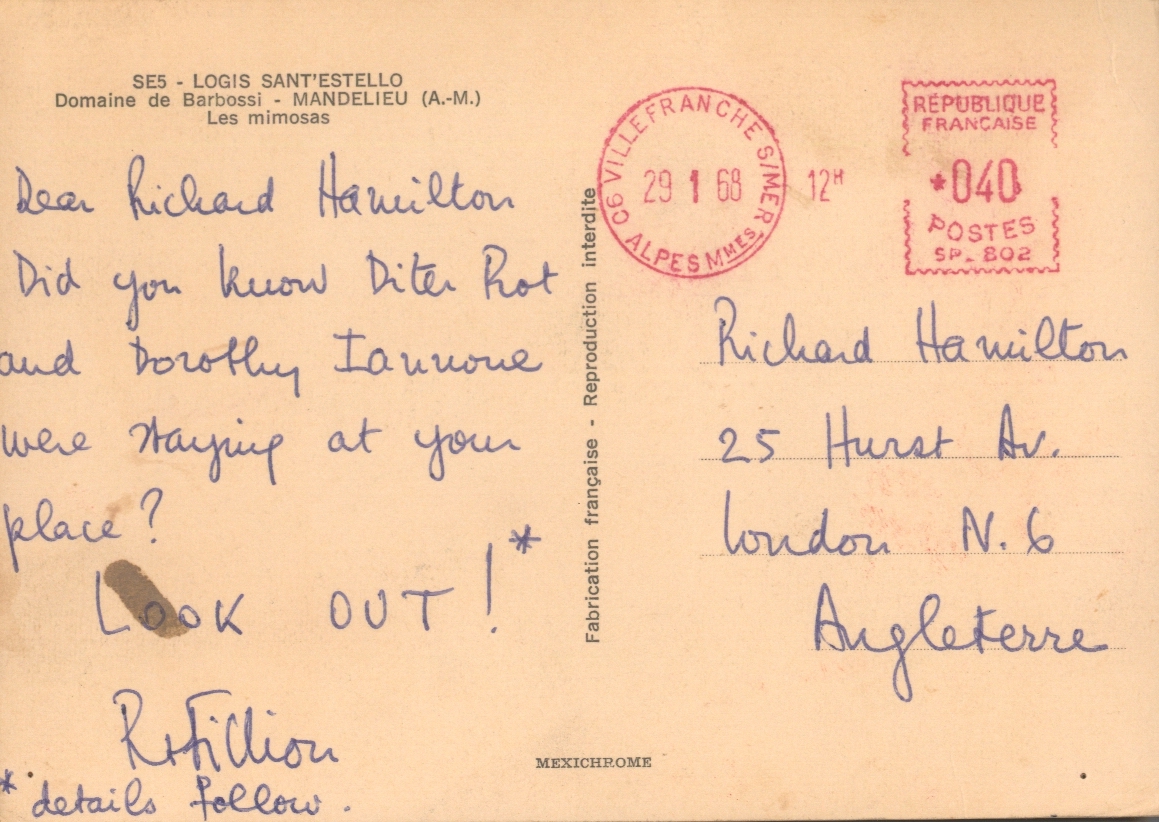 SE5 - LOGIS SANT'ESTELLO
Domaine de Barbossi - MANDELIEU (A.-M.)
Les mimosas
Dear Richard Hamilton
Did you know Diter Rot
and Dorothy Iannone
were staying at your
place?
LOOK OUT!*
R+Fillion
* details follow.
Fabrication française - Reproduction interdite
MEXICHROME
06 VILLEFRANCHE S/MER
29 1 68
ALPES MMES
12H
RÉPUBLIQUE
FRANÇAISE
*040
POSTES
SP. 802
Richard Hamilton
25 Hurst Av.
London N.6
Angleterre